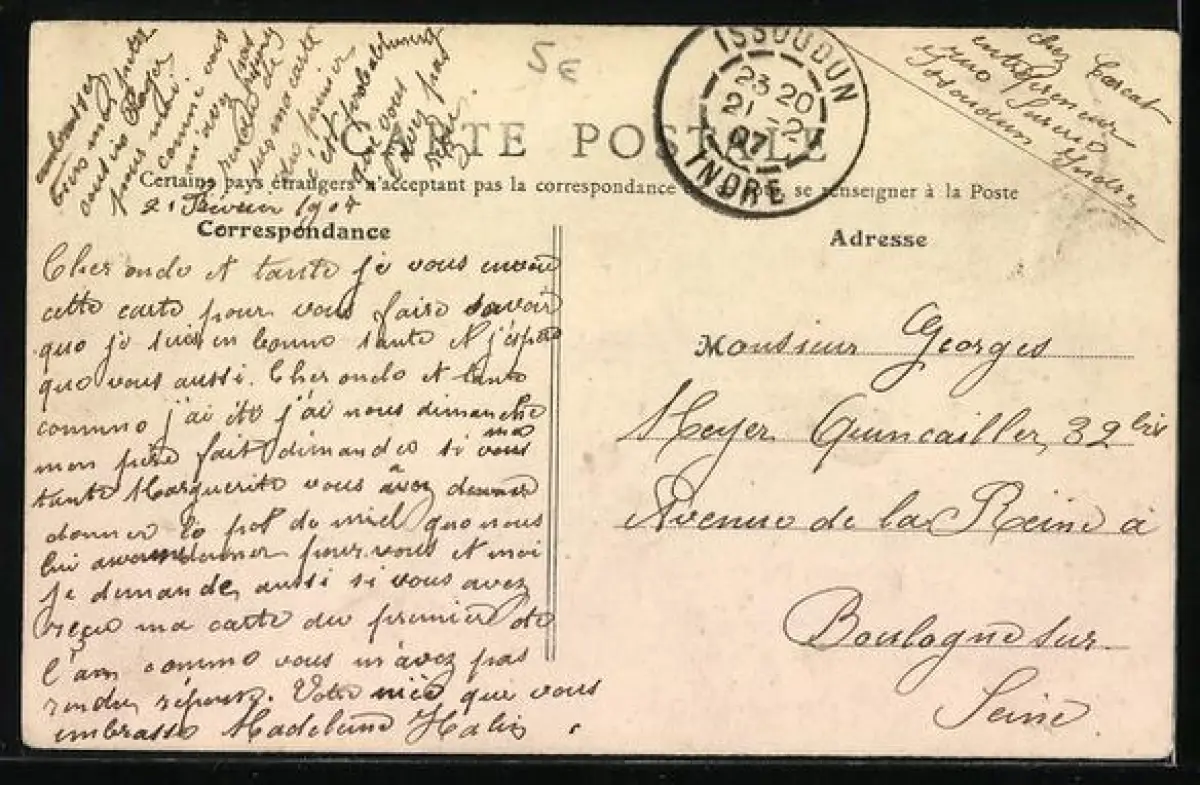 embrassez
bien mes petits
cousins Roger
pour moi
comme vous
m'avez pas
rendu réponse
sur ma carte
du premier
c'est probablement
que vous
l'avez pas
reçue.
5 E
chez
entrepreneur
rue
Issoudun Indre
ISSOUDUN
23 20
21 -2
07
INDRE
CARTE POSTALE
Certains pays étrangers n'acceptant pas la correspondance se renseigner à la Poste
21 Février 1907
Correspondance
Adresse
Cher oncle et tante je vous envoie
cette carte pour vous faire savoir
que je suis en bonne santé et j'espère
que vous aussi. Cher oncle et tante
comme j'ai été j'ai nous dimanche
mon père fait dimander si vous
ma
tante Marguerite vous a
donner le pot de miel que nous
lui avons donner pour vous et moi
je demande aussi si vous avez
reçu ma carte du premier de
l'an comme vous m'avez pas
rendu réponse. Votre nièce que vous
embrasse Madeleine Halin
Monsieur Georges
Meyer Quincailler, 32 bis
Avenue de la Reine à
Boulogne sur
Seine